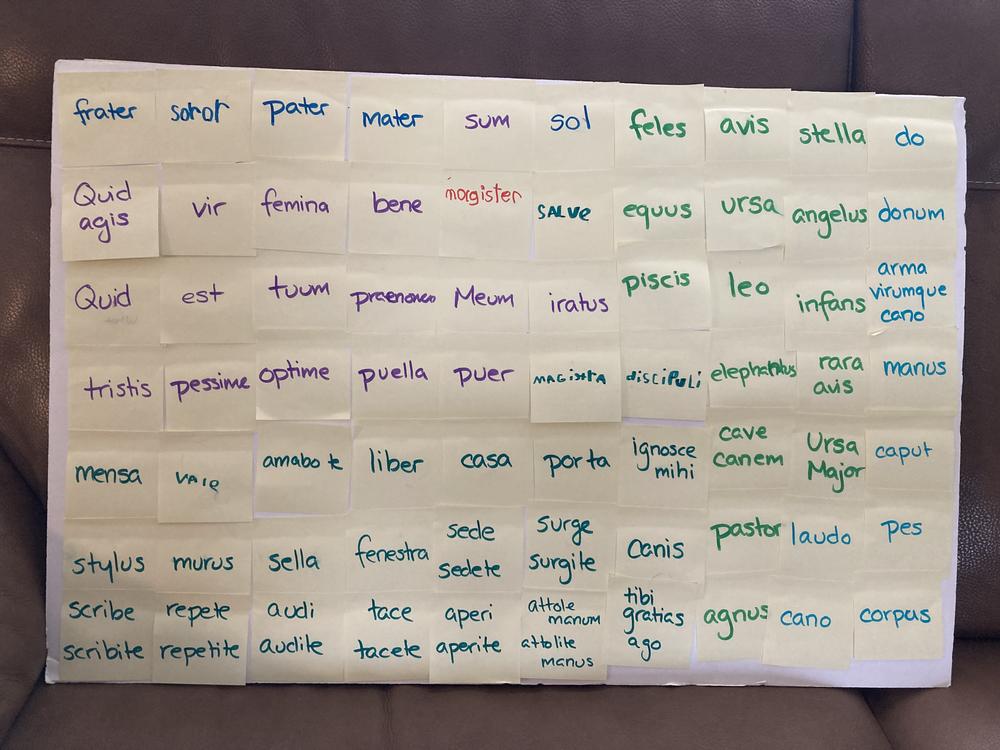 frater soror pater mater sum sol feles avis stella do
Quid agis vir femina bene magister SALVE equus ursa angelus donum
Quid est tuum praenomen Meum iratus piscis leo infans arma virumque cano
tristis pessime optime puella puer MAGISTRA DISCIPULI elephantus rara avis manus
mensa VALE amabo te liber casa porta ignosce mihi cave canem Ursa Major caput
stylus murus sella fenestra sede sedete surge surgite canis pastor laudo pes
scribe scribite repete repetite audi audite tace tacete aperi aperite attole manum attolite manus tibi gratias ago agnus cano corpus